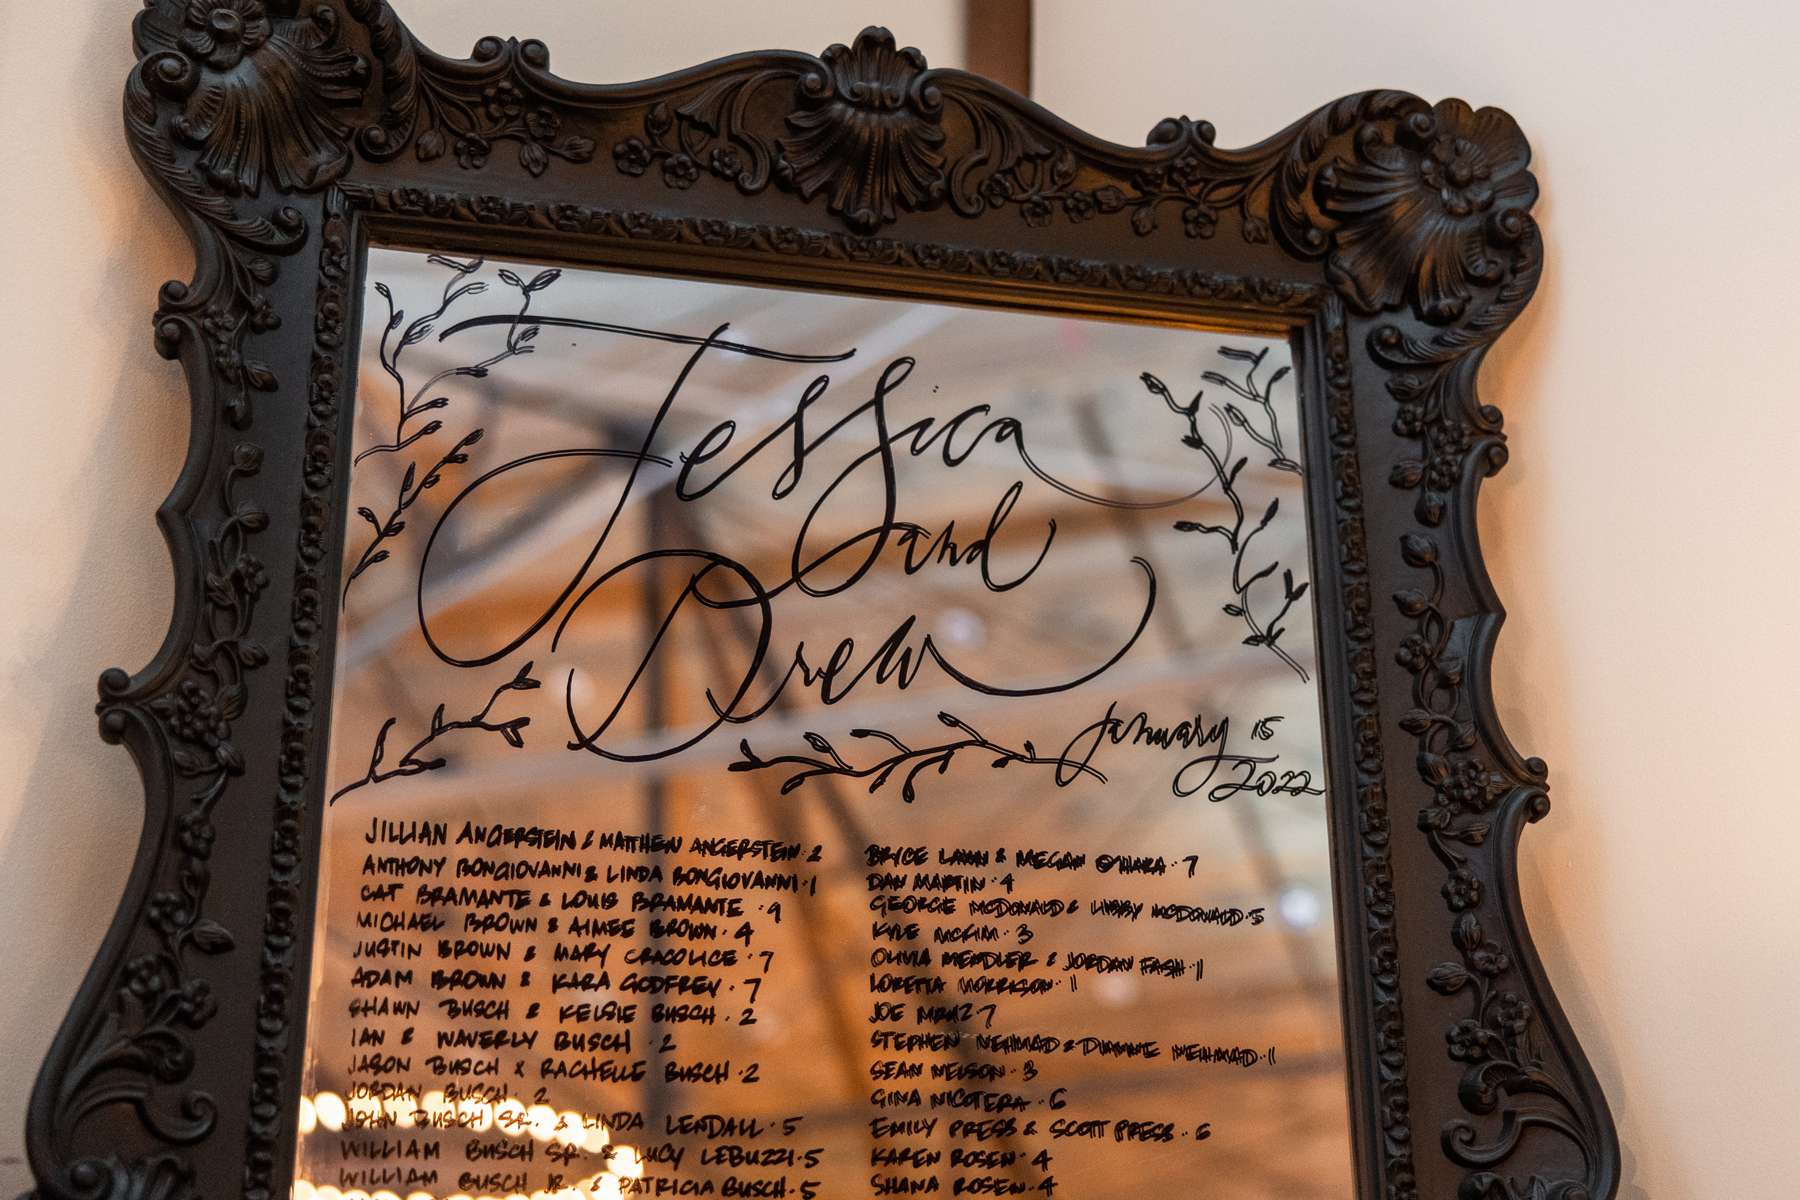 Jessica
and
Drew
January 15
2022
JILLIAN ANGERSTEIN & MATTHEW ANGERSTEIN · 2
ANTHONY BONGIOVANNI & LINDA BONGIOVANNI · 1
CAT BRAMANTE & LOUIS BRAMANTE · 9
MICHAEL BROWN & AIMEE BROWN · 4
JUSTIN BROWN & MARY CRACOLICE · 7
ADAM BROWN & KARA GODFREY · 7
SHAWN BUSCH & KELSIE BUSCH · 2
IAN & WAVERLY BUSCH · 2
JASON BUSCH & RACHELLE BUSCH · 2
JORDAN BUSCH · 2
JOHN BUSCH SR. & LINDA LENDALL · 5
WILLIAM BUSCH SR. & LUCY LEBUZZI · 5
WILLIAM BUSCH JR. & PATRICIA BUSCH · 5
BRYCE LAWN & MEGAN O'HARA · 7
DAN MARTIN · 4
GEORGE MCDONALD & LIBBY MCDONALD · 5
KYLE MCKIM · 3
OLIVIA MENDLER & JORDAN FASH · 11
LORETTA MORRISON · 11
JOE MRUZ · 7
STEPHEN NEHMAD & DIANNE NEHMAD · 11
SEAN NELSON · 3
GINA NICOTERA · 6
EMILY PRESS & SCOTT PRESS · 6
KAREN ROSEN · 4
SHANA ROSEN · 4